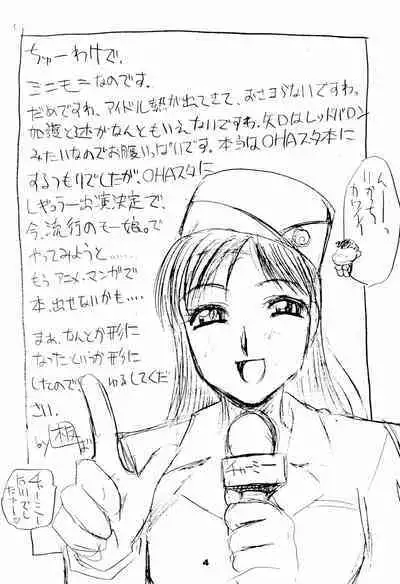 ちゅーわけで、
ミニモニなのです。
だめですわ、アイドル熱が出てきて、おさまらないですわ。
加護と辻がなんともいえないですわ。矢口はレッドバロン
みたいなのでお腹いっぱいです。本当はOHAスタ本に
するつもりでしたが、OHAスタに
レギュラー出演決定で、
今、流行のモー娘。で
やってみようと……
もうアニメ・マンガで
本、出せないかも‥‥
まぁ、なんとか形に
なったというか形に
したので、ゆるしてくだ
さい。
by
カワイイ
チャーミー
チャーミー
4